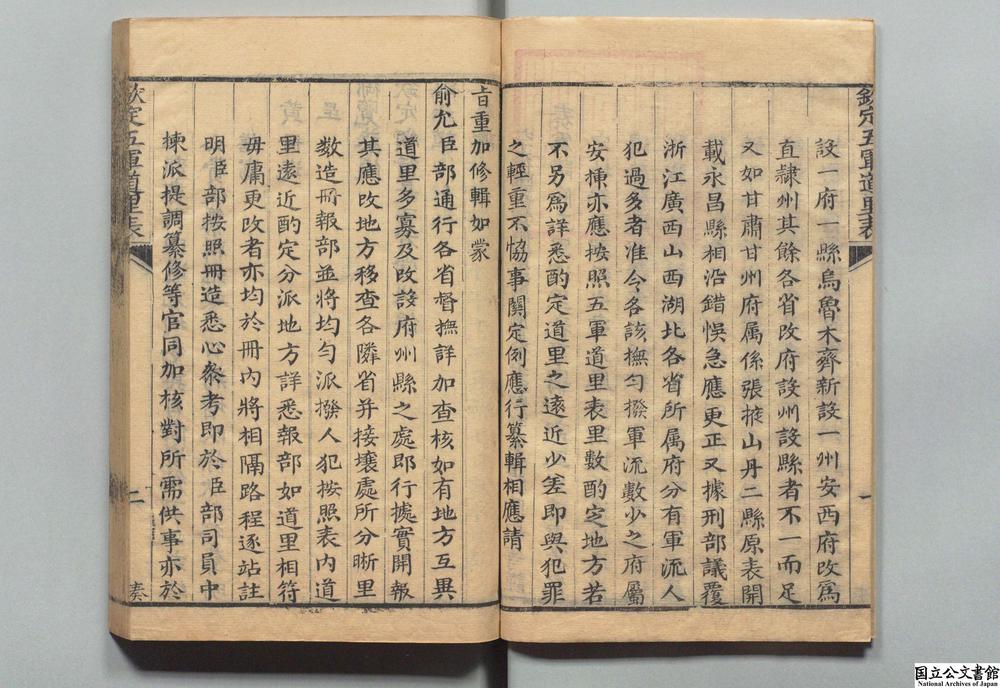 欽定五軍道里表
設一府一縣烏魯木齊新設一州安西府改爲
直隷州其餘各省改府設州設縣者不一而足
又如甘肅甘州府属係張掖山丹二縣原表開
載永昌縣相沿錯悞急應更正又據刑部議覆
浙江廣西山西湖北各省所属府分有軍流人
犯過多者准令各該撫勻撥軍流數少之府屬
安揷亦應按照五軍道里表里數酌定地方若
不另爲詳悉酌定道里之遠近少差即與犯罪
之輕重不恊事関定例應行纂輯相應請
一
旨重加修輯如蒙
俞允臣部通行各省督撫詳加查核如有地方互異
道里多寡及改設府州縣之處即行據實開報
其應改地方移查各隣省并接壤處所分晰里
數造冊報部並將均勻派撥人犯按照表内道
里遠近酌定分派地方詳悉報部如道里相符
毋庸更改者亦均於冊内將相隔路程逐站註
明臣部按照冊造悉心叅考即於臣部司員中
揀派提調纂修等官同加核對所需供事亦於
欽定五軍道里表
二
奏
国立公文書館
National Archives of Japan